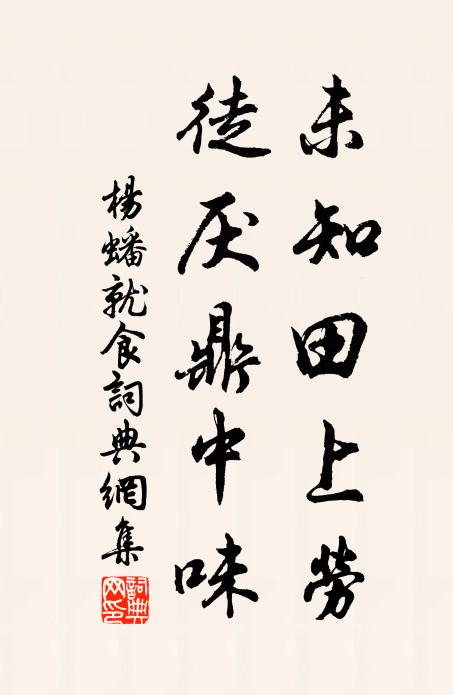 未知田上勞
徒厌鼎中味
楊蟠就食詞典網集
詞典網印